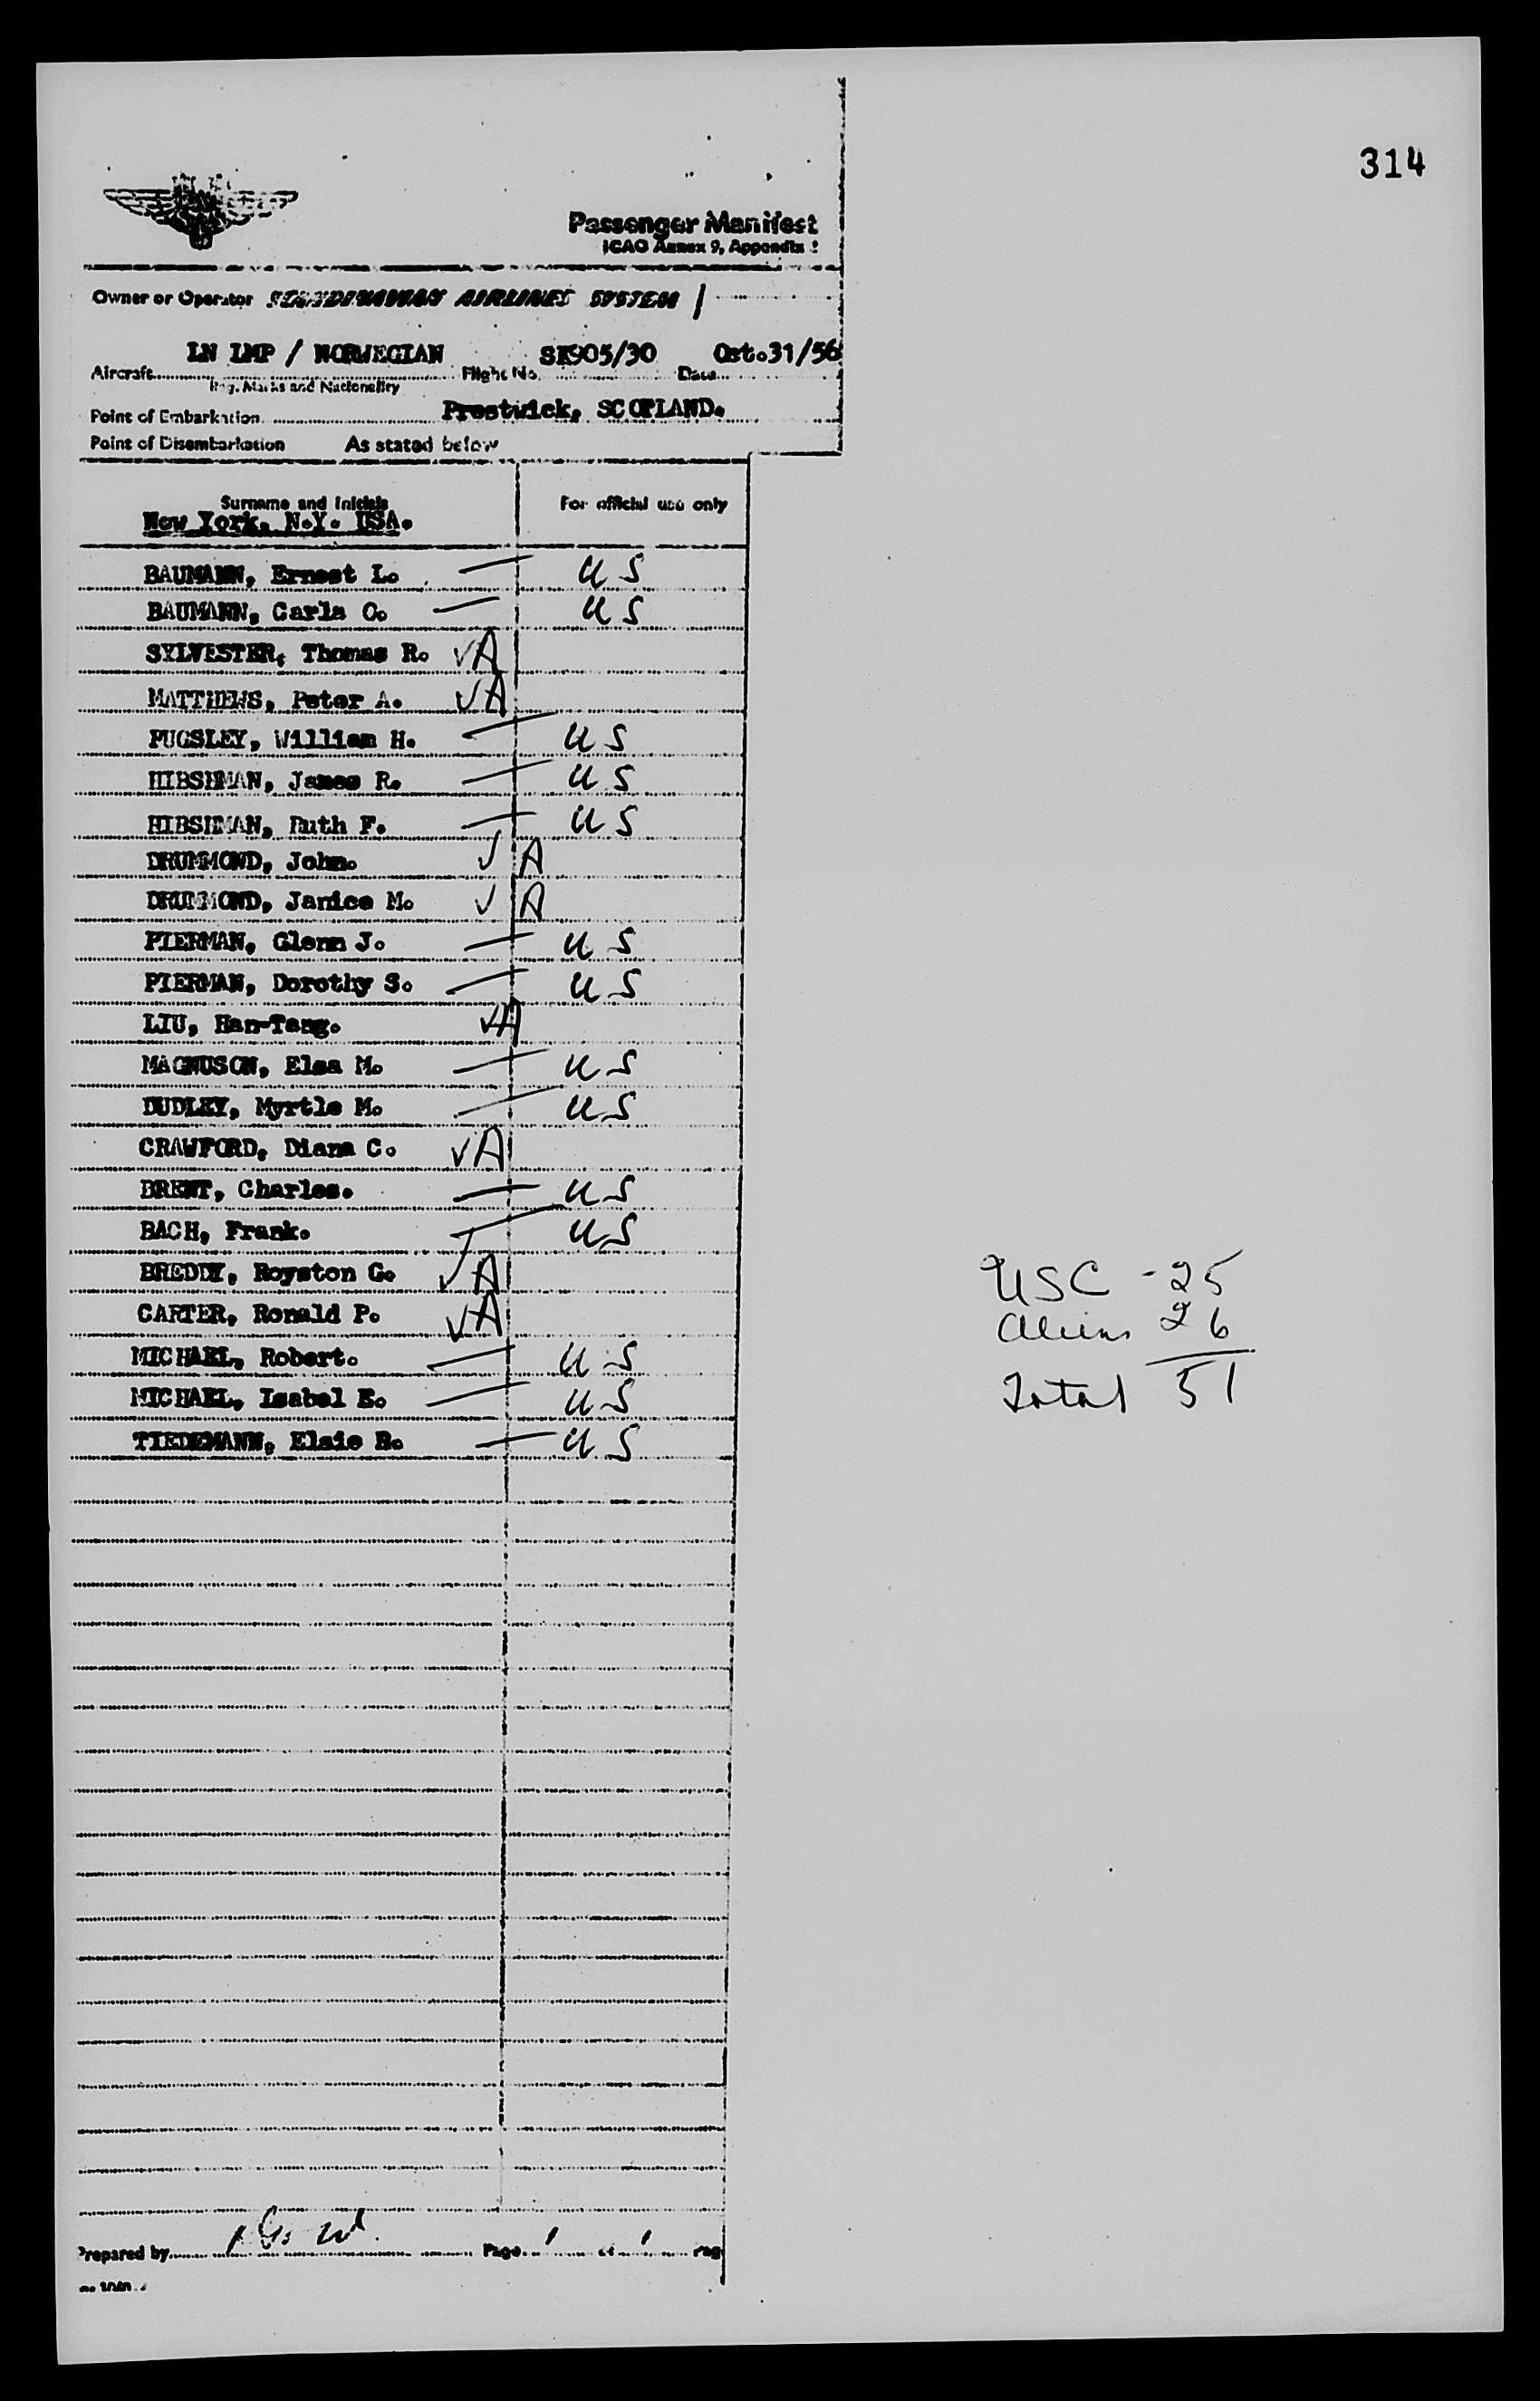 314
Passenger Manifest
ICAO Annex 9, Appendix
Owner or Operator SCANDINAVIAN AIRLINES SYSTEM
LN LMP / NORWEGIAN SK905/30 Oct.31/56
Aircraft Flight No. Date
Reg. Marks and Nationality
Point of Embarkation Prestwick, SCOTLAND.
Point of Disembarkation As stated below
Surname and Initials For official use only
New York, N.Y. USA.
BAUMANN, Ernest L. — U S
BAUMANN, Carla O. — U S
SYLVESTER, Thomas R. ✓A
MATTHEWS, Peter A. ✓A
PUGSLEY, William H. — U S
HIBSHMAN, James R. — U S
HIBSHMAN, Ruth F. — U S
DRUMMOND, John. ✓ A
DRUMMOND, Janice M. ✓ A
PIERMAN, Glenn J. — U S
PIERMAN, Dorothy S. — U S
LIU, Han-Tang. ✓A
MAGNUSON, Elsa M. — U S
DUDLEY, Myrtle M. — U S
CRAWFORD, Diana C. ✓A
BRENT, Charles. — U S
BACH, Frank. — U S
BREDDY, Royston G. ✓A
CARTER, Ronald P. ✓A
MICHAEL, Robert. — U S
MICHAEL, Isabel E. — U S
TIEDEMANN, Elsie B. — U S
USC - 25
Aliens 26
Total 51
Prepared by Page 1 1